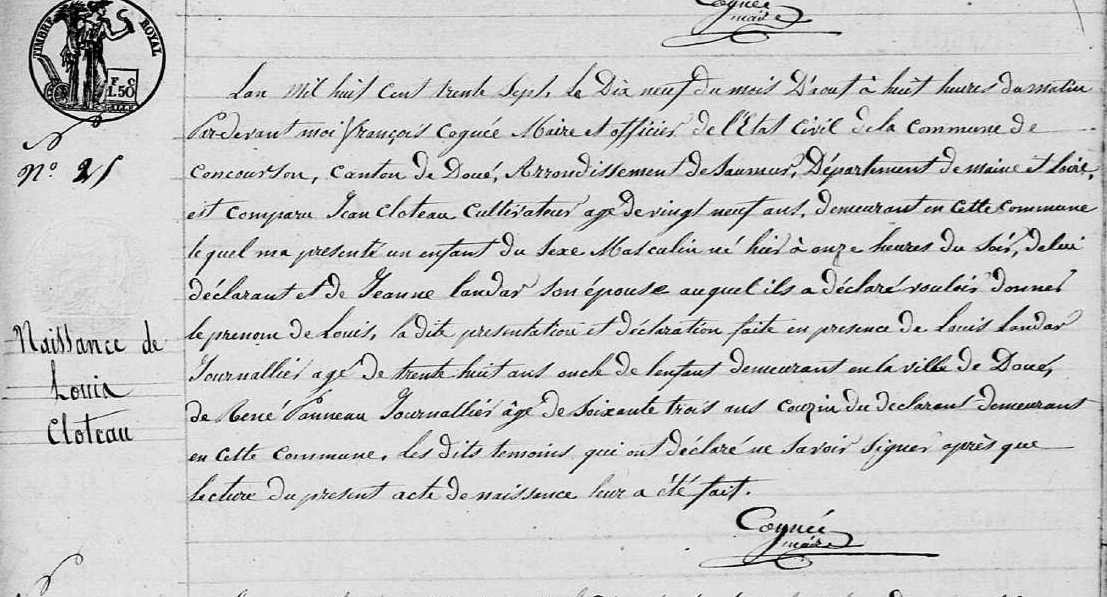 Cognée
maire
TIMBRE ROYAL
F C
1.50
Lan Mil huit Cent trente Sept, le Dix neuf du mois D'aout à huit heures du matin
Par devant moi françois Cognée Maire et officier de l'Etat Civil de la Commune de
Concourson, Canton de Doué, Arrondissement de Saumur, Département de maine et Loire,
N° 21
est comparu Jean Cloteau Cultivateur age de vingt neuf ans, demeurant en cette commune
lequel ma presenté un enfant du Sexe Masculin né hier à onze heures du Soir, de lui
déclarant et de Jeanne Landar Son épouse auquel ils a déclaré vouloir donner
le prenom de Louis, la dite presentation et déclaration faite en presence de Louis Landar
Naissance de
Louis
Cloteau
Journallier agé de trente huit ans oncle de lenfant demeurant en la ville de Doué,
de René Panneau Journallier âge de Soixante trois ans couzin du declarant demeurant
en cette Commune, Les dits temoins qui ont déclaré ne Savoir Signer après que
lecture du present acte de naissance leur a été fait.
Cognée
maire